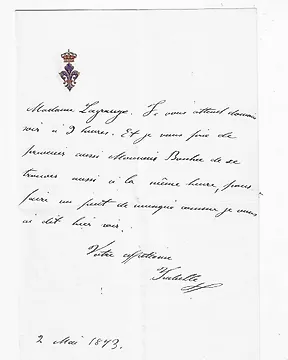 Madame Lagrange. Je vous attend demain
soir à 9 heures. Et je vous prie de
prevenir aussi Monsieur Bonhie de se
trouver aussi à la même heure, pour
faire un petit de musique comme je vous
ai dit hier soir.
Votre affettione
Isabelle
2 Mai 1873.